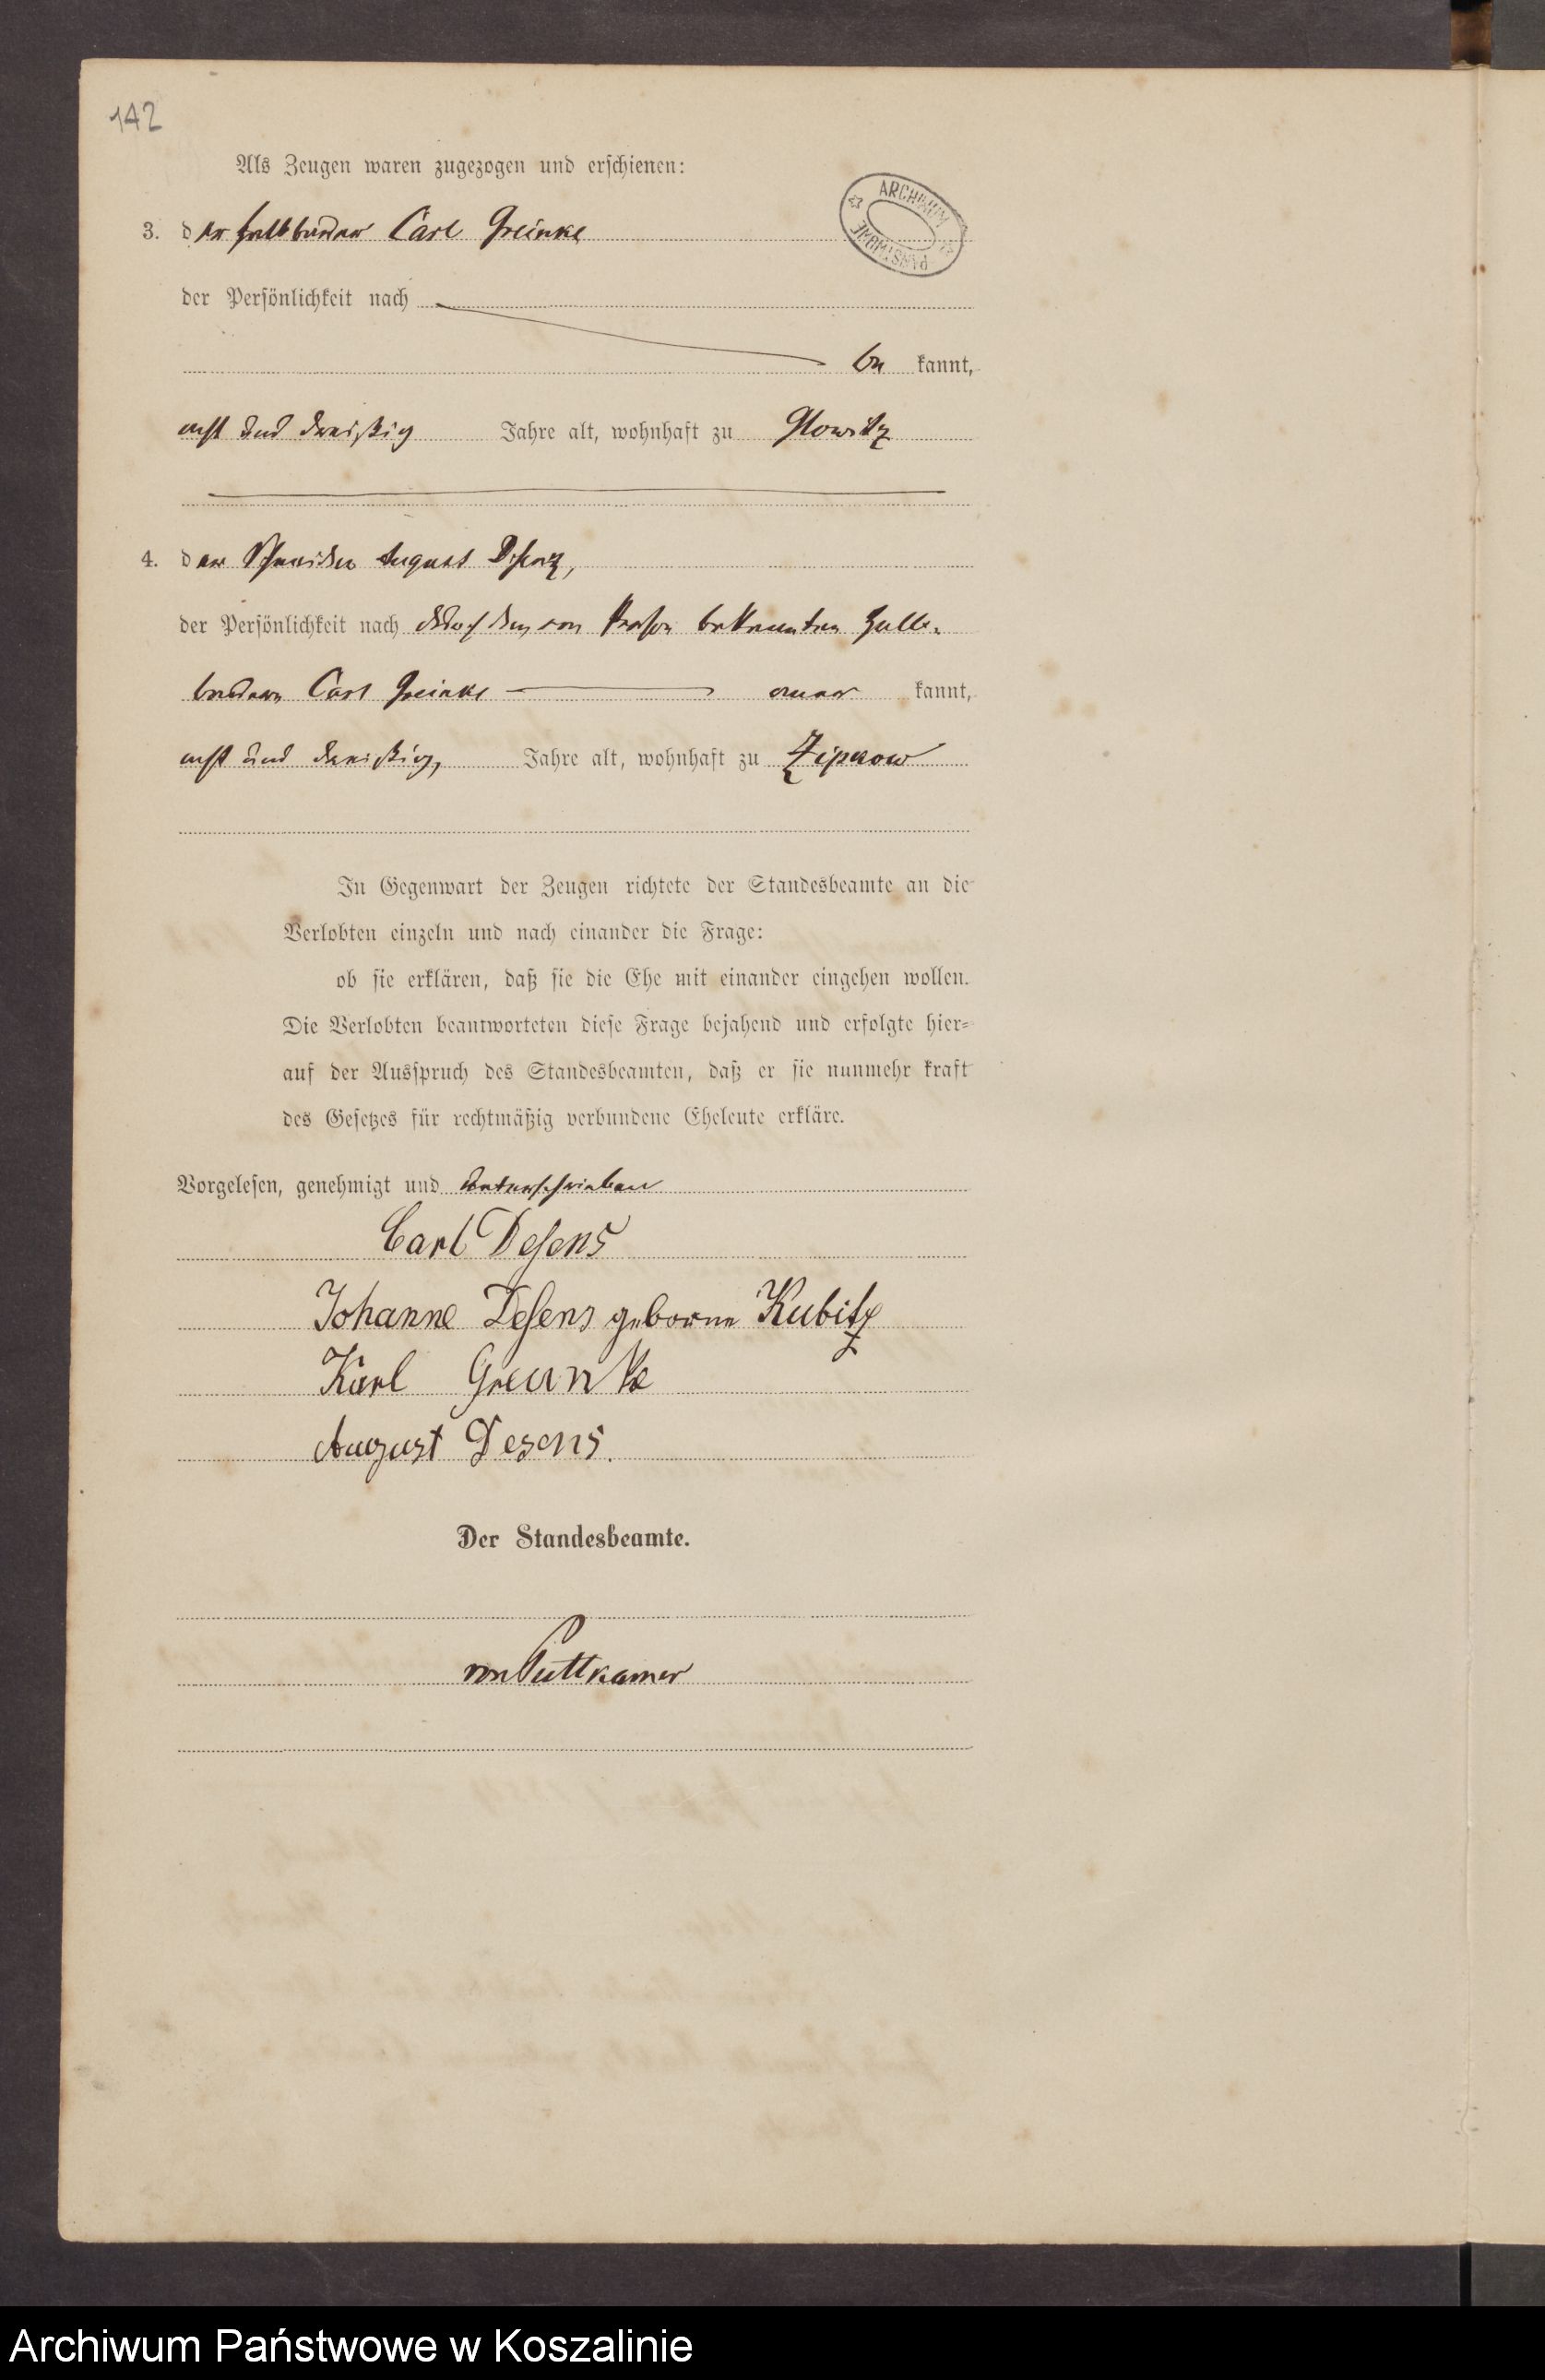 142
Als Zeugen waren zugezogen und erschienen:
ARCHIWUM
PAŃSTWOWE
3. der Halbbauer Carl Greinke
der Persönlichkeit nach
be kannt,
acht und dreißig Jahre alt, wohnhaft zu Glowitz
4. der August
der Persönlichkeit nach durch den von Person bekannten Halb-
bauern Carl Greinke aner kannt,
acht und dreißig, Jahre alt, wohnhaft zu Zipkow
In Gegenwart der Zeugen richtete der Standesbeamte an die
Verlobten einzeln und nach einander die Frage:
ob sie erklären, daß sie die Ehe mit einander eingehen wollen.
Die Verlobten beantworteten diese Frage bejahend und erfolgte hier=
auf der Ausspruch des Standesbeamten, daß er sie nunmehr kraft
des Gesetzes für rechtmäßig verbundene Eheleute erkläre.
Vorgelesen, genehmigt und unterschrieben
Carl Desens
Johanne Desens geborne Kubitz
Karl Greunke
August Desens.
Der Standesbeamte.
von Puttkamer
Archiwum Państwowe w Koszalinie